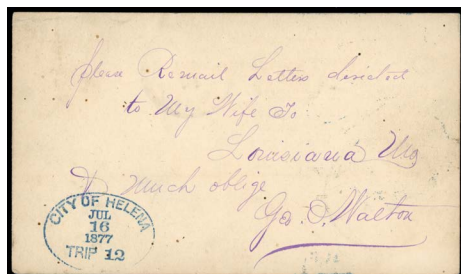 Please Remail Letters directed
to My Wife To
Louisiana Mo
& Much oblige
Geo. D. Walton
CITY OF HELENA
JUL
16
1877
TRIP 12